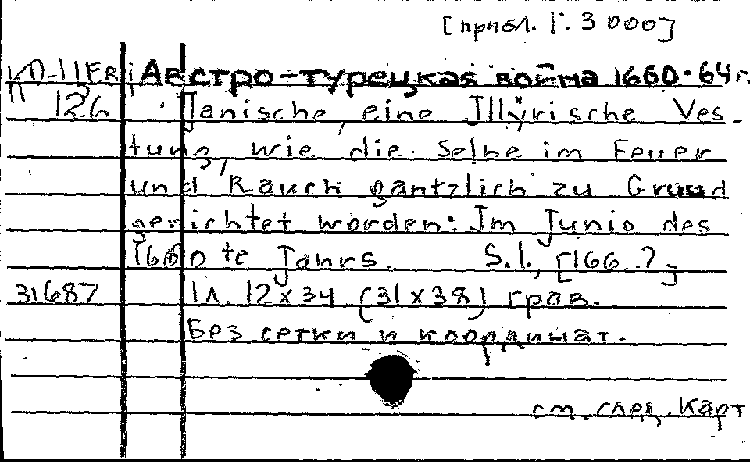 [прибл. 1:3 000]
Австро-турецкая война 1660-64 г.
126 Janische, eine Jllÿrische Ves-
tung, wie die Selbe im Feuer
und Rauch gäntzlich zu Grund
gerichtet worden: Im Junio des
1660 te Jahrs. S.l., [166.?]
31687 1 л. 12x34 (31x38) грав.
Без сетки и координат.
см. след. карт